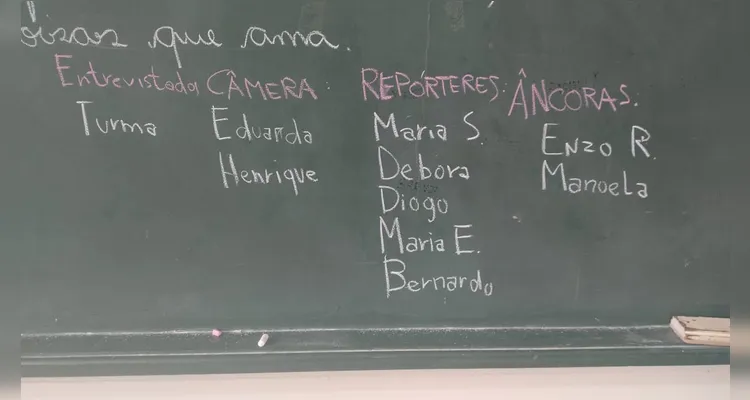 que ama.
Entrevistados CÂMERA: REPÓRTERES: ÂNCORAS.
Turma Eduarda Maria S. Enzo R.
Henrique Debora Manoela
Diogo
Maria E.
Bernardo